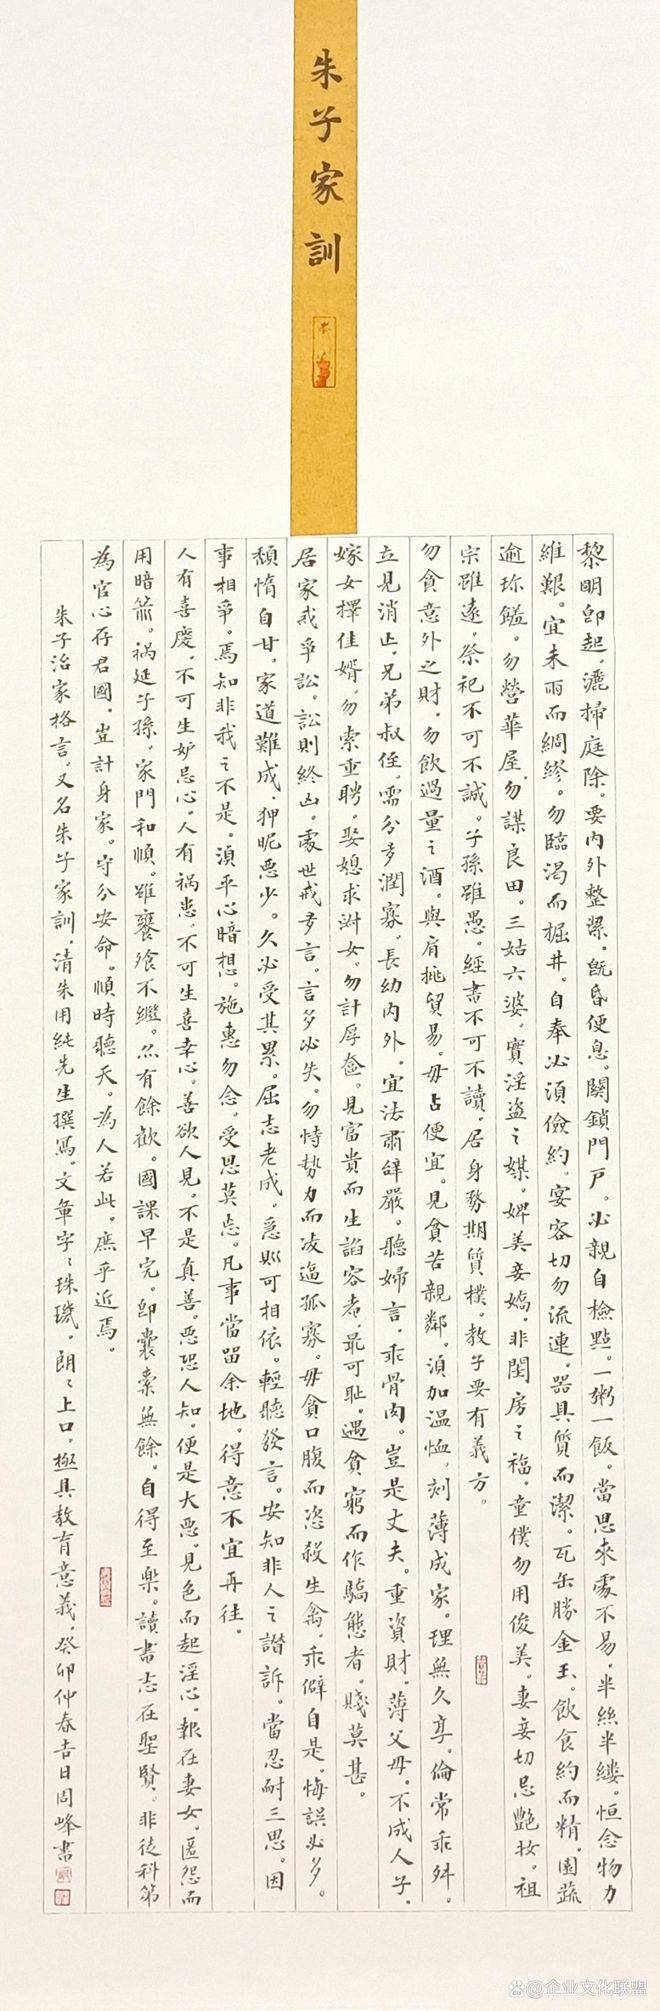 朱子家訓
黎明即起。灑掃庭除。要內外整潔。既昏便息。關鎖門戶。必親自檢點。一粥一飯。當思來處不易。半絲半縷。恒念物力
維艱。宜未雨而綢繆。勿臨渴而掘井。自奉必須儉約。宴客切勿流連。器具質而潔。瓦缶勝金玉。飲食約而精。園蔬
逾珍饈。勿營華屋。勿謀良田。三姑六婆。實淫盜之媒。婢美妾嬌。非閨房之福。童僕勿用俊美。妻妾切忌艷妝。祖
宗雖遠。祭祀不可不誠。子孫雖愚。經書不可不讀。居身務期質樸。教子要有義方。
勿貪意外之財。勿飲過量之酒。與肩挑貿易。毋占便宜。見貧苦親鄰。須加溫恤。刻薄成家。理無久享。倫常乖舛。
立見消亡。兄弟叔侄。需分多潤寡。長幼內外。宜法肅辭嚴。聽婦言。乖骨肉。豈是丈夫。重資財。薄父母。不成人子。
嫁女擇佳婿。勿索重聘。娶媳求淑女。勿計厚奩。見富貴而生諂容者。最可恥。遇貧窮而作驕態者。賤莫甚。
居家戒爭訟。訟則終凶。處世戒多言。言多必失。勿恃勢力而凌逼孤寡。毋貪口腹而恣殺生禽。乖僻自是。悔誤必多。
頹惰自甘。家道難成。狎昵惡少。久必受其累。屈志老成。急則可相依。輕聽發言。安知非人之譖訴。當忍耐三思。因
事相爭。焉知非我之不是。須平心暗想。施惠勿念。受恩莫忘。凡事當留余地。得意不宜再往。
人有喜慶。不可生妒忌心。人有禍患。不可生喜幸心。善欲人見。不是真善。惡恐人知。便是大惡。見色而起淫心。報在妻女。匿怨而
用暗箭。禍延子孫。家門和順。雖饔飧不繼。亦有餘歡。國課早完。即囊橐無餘。自得至樂。讀書志在聖賢。非徒科第
為官心存君國。豈計身家。守分安命。順時聽天。為人若此。庶乎近焉。
朱子治家格言。又名朱子家訓。清朱用純先生撰寫。文章字〻珠璣。朗〻上口。極具教育意義。癸卯仲春吉日周峰書
@企业文化联盟